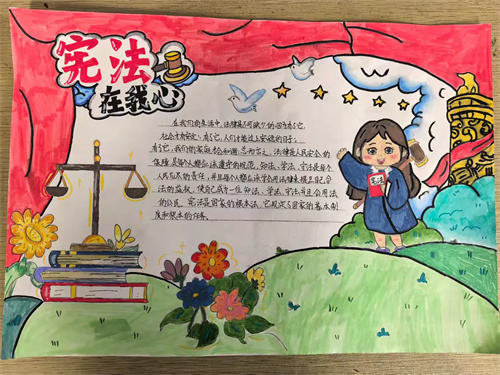 宪法
在我心
在我们的生活中，法律是不可缺少的，因为有了它，
社会才有安定；有了它，人们才能过上安稳的日子；
有了它，我们的家庭才会和谐。总而言之，法律是人民安全的
保障，是每个人都应该遵守的规范。知法、学法、守法是每个
人民的责任，并且每个人都应该学会用法律来维护自己合
法的权益，使自己成为一位知法、学法、守法，并且会用法
的公民。宪法是国家的根本法，它规定了国家的基本制
度和根本的任务。